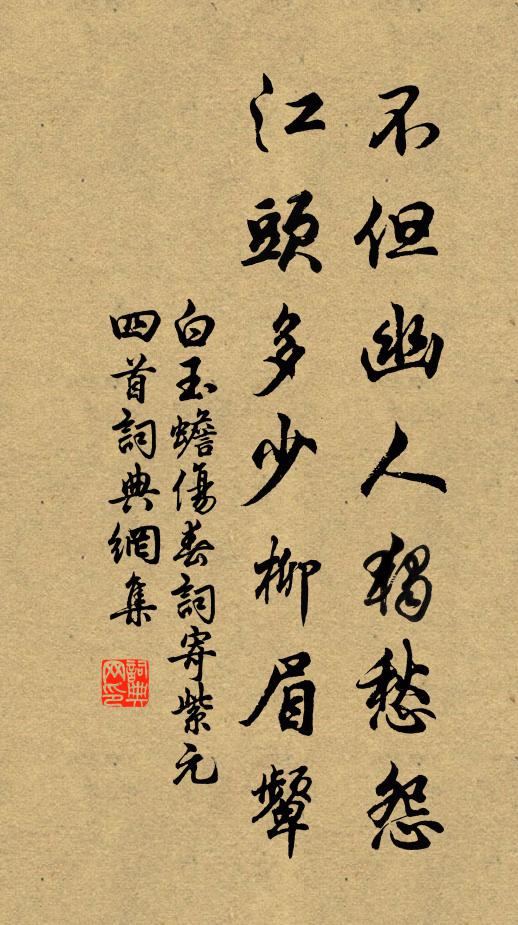 不但幽人獨愁怨
江頭多少柳眉顰
白玉蟾傷春詞寄紫元
四首詞典網集
詞典网印